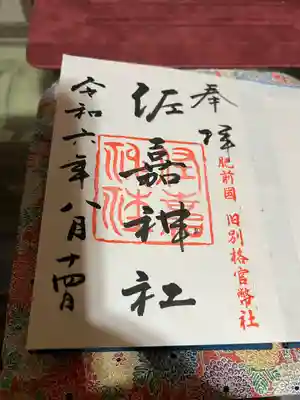 奉拝
肥前国 旧別格官幣社
佐嘉神社
佐嘉神社
令和六年八月十四日